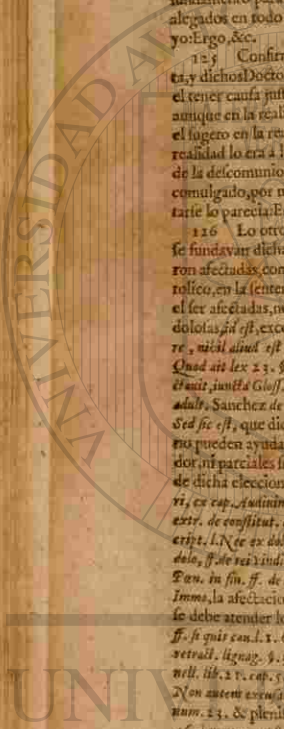 alegados en todo
yo: Ergo, &c.
125 Confir
ta, y dichos Doctor
el tener causa just
aunque en la reali
el sugeto en la rea
realidad lo era a l
de la descomunio
comulgado, por n
tarse lo parecia: E
126 Lo otro
se fundavan dicha
ron afectadas, con
tolico, en la senten
el ser afectadas, n
dolosas, id est, exce
re, nihil aliud est
Quod ait lex 23. §
ctavit, iuncta Gloss.
adult. Sanchez de
Sed sic est, que dic
no pueden ayuda
dor, ni parciales s
de dicha eleccion
ri, ex cap. Audivim
extr. de constitut.
cript. l. Nec ex dol
dolo, ff. de rei vindi
Pœn. in fin. ff. de
Immo, la afectacio
se debe atender lo
ff. si quis cau. l. 1. §
retract. lignag. §.
nell. lib. 21. cap. 5
Non autem excusa
num. 23. & pleni
UNIVERSIDAD
UNIV